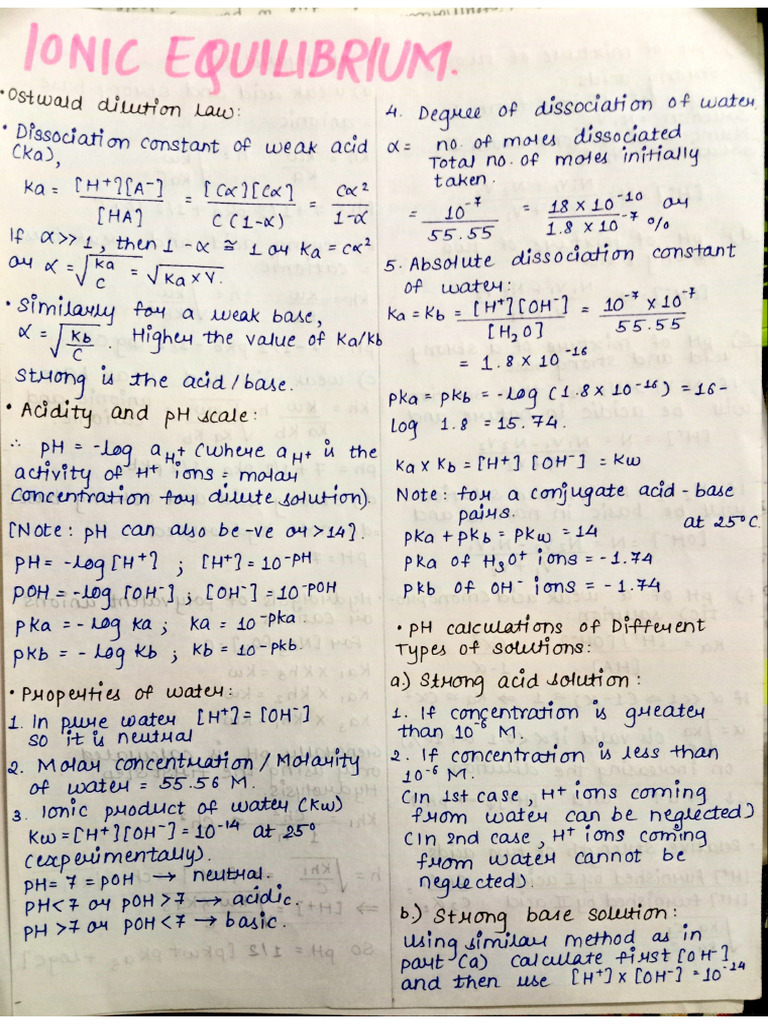 IONIC EQUILIBRIUM.
• Ostwald dilution law:
• Dissociation constant of weak acid
(Ka),
Ka = [H+][A-]/[HA] = [Cα][Cα]/C(1-α) = Cα²/1-α
If α>>1, then 1-α ≅ 1 or Ka = Cα²
or α = √Ka/C = √Ka x V.
• Similarly for a weak base,
α = √Kb/C. Higher the value of Ka/kb
strong is the acid/base.
• Acidity and pH scale:
∴ pH = -log aH+ (where aH+ is the
activity of H+ ions = molar
concentration for dilute solution).
[Note: pH can also be -ve or >14].
pH = -log[H+] ; [H+] = 10^-pH
pOH = -log[OH-] ; [OH-] = 10^-pOH
pka = -log ka ; ka = 10^-pka
pkb = -log kb ; kb = 10^-pkb.
• Properties of water:
1. In pure water [H+] = [OH-]
so it is neutral
2. Molar concentration / Molarity
of water = 55.56 M.
3. Ionic product of water (Kw)
Kw = [H+][OH-] = 10^-14 at 25°
(experimentally).
pH = 7 = pOH → neutral.
pH<7 or pOH >7 → acidic.
pH >7 or pOH <7 → basic.
4. Degree of dissociation of water
α = no. of moles dissociated
Total no. of moles initially
taken.
= 10^-7/55.55 = 18 x 10^-10 or
1.8 x 10^-7 %
5. Absolute dissociation constant
of water:
Ka = Kb = [H+][OH-]/[H2O] = 10^-7 x 10^-7/55.55
= 1.8 x 10^-16
pKa = pKb = -log (1.8 x 10^-16) = 16-
log 1.8 = 15.74.
Ka x Kb = [H+] [OH-] = Kw
Note: for a conjugate acid-base
pairs.
pKa + pKb = pKw = 14 at 25°C.
pKa of H3O+ ions = -1.74
pkb of OH- ions = -1.74
• pH calculations of Different
Types of solutions:
a.) Strong acid solution:
1. If concentration is greater
than 10^-6 M.
2. If concentration is less than
10^-6 M.
(In 1st case, H+ ions coming
from water can be neglected)
(In 2nd case, H+ ions coming
from water cannot be
neglected).
b.) Strong base solution:
Using similar method as in
part (a) calculate first [OH-]
and then use [H+] x [OH-] = 10^-14